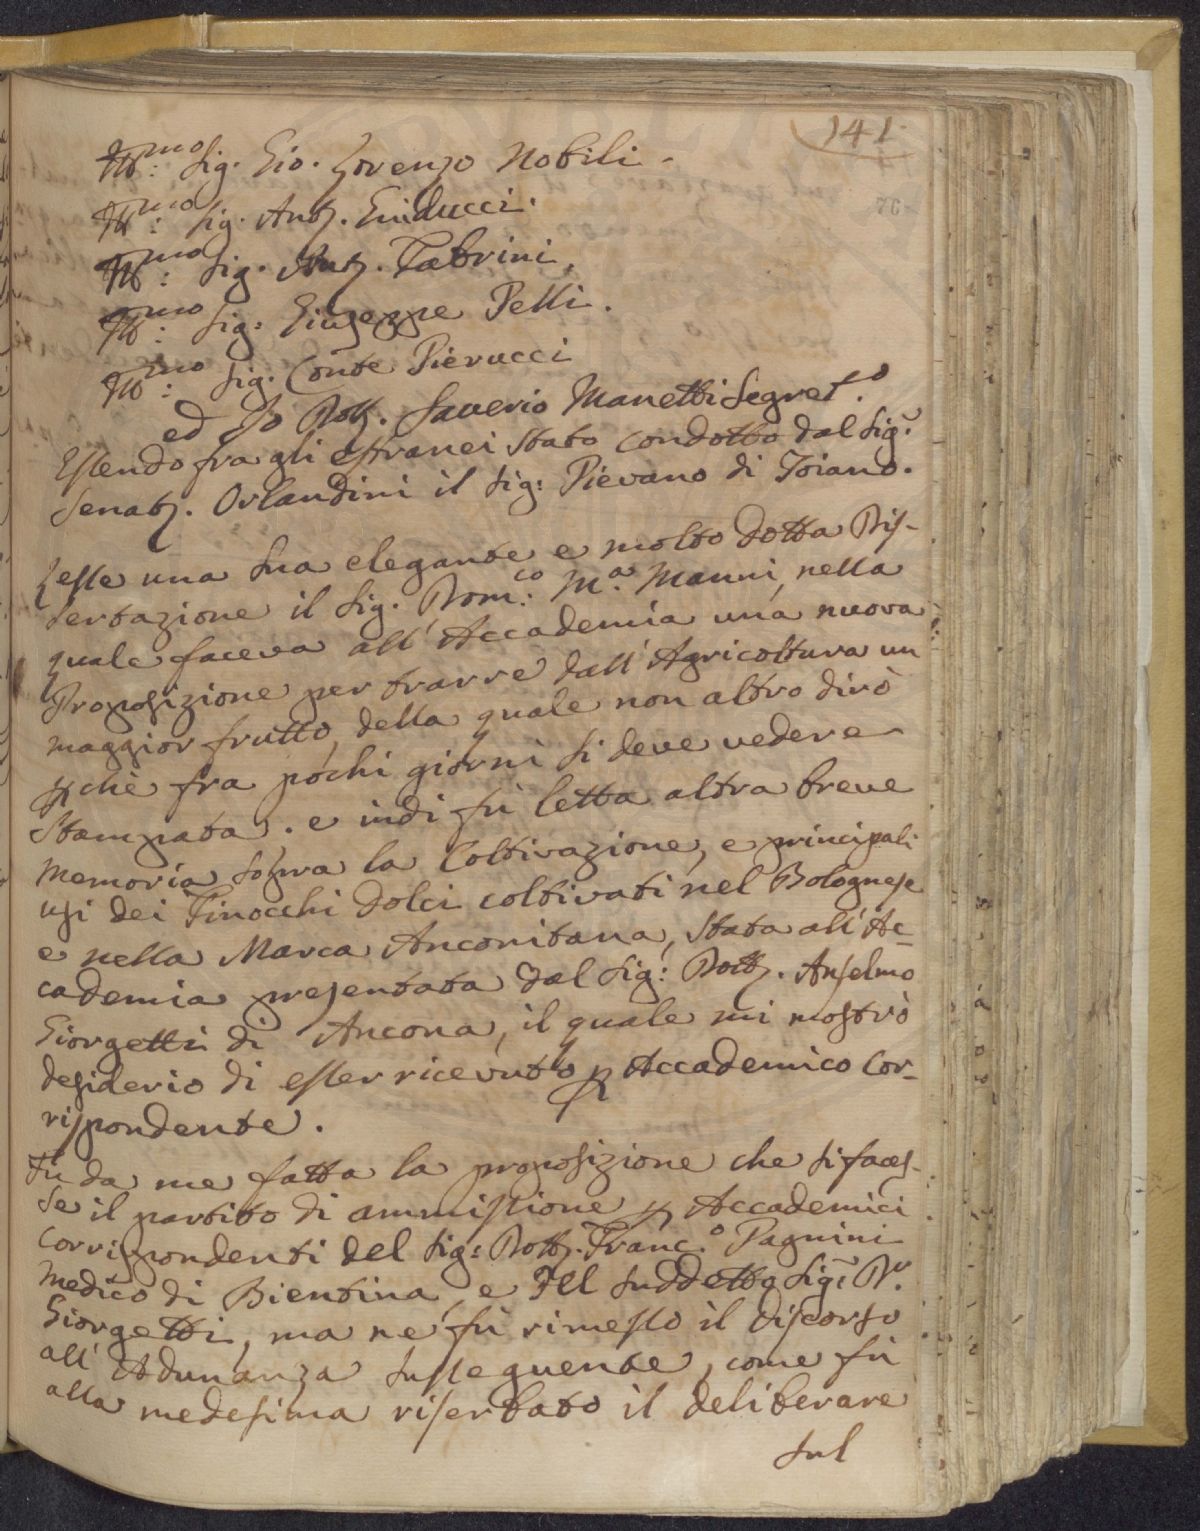 141.
76
Ill:mo Sig. Gio. Lorenzo Nobili.
Ill:mo Sig. Antº. Guiducci.
Ill:mo Sig. Antº. Fabrini.
Ill:mo Sig: Giuseppe Pelli.
Ill:mo Sig. Conte Pierucci
ed Io Dottº. Saverio Manetti Segret.º
Essendo fra gli estranei stato condotto dal Sig.r
Senatº. Orlandini il Sig: Pievano di Toiano.
Lesse una sua elegante e molto dotta Dis-
sertazione il Sig. Dom:co M:a Manni, nella
quale faceva all'Accademia una nuova
Proposizione per trarre dall'Agricoltura un
maggior frutto, della quale non altro dirò
pchè fra pochi giorni si deve vedere
stampata. e indi fù letta altra breve
memoria sopra la Coltivazione, e principali
usi dei Finocchi dolci coltivati nel Bolognese
e nella Marca Anconitana, stata all'Ac-
cademia presentata dal Sig: Dottº. Anselmo
Giorgetti di Ancona, il quale mi mostrò
desiderio di esser ricevuto p Accademico Cor-
rispondente.
Fù da me fatta la proposizione che si faces-
se il partito di ammissione p Accademici
Corrispondenti del Sig: Dottº. Franc.º Pagnini
Medico di Bientina, e del suddetto Sig: D.r
Giorgetti, ma ne fù rimesso il discorso
all'Adunanza susseguente, come fù
alla medesima riserbato il deliberare
sul